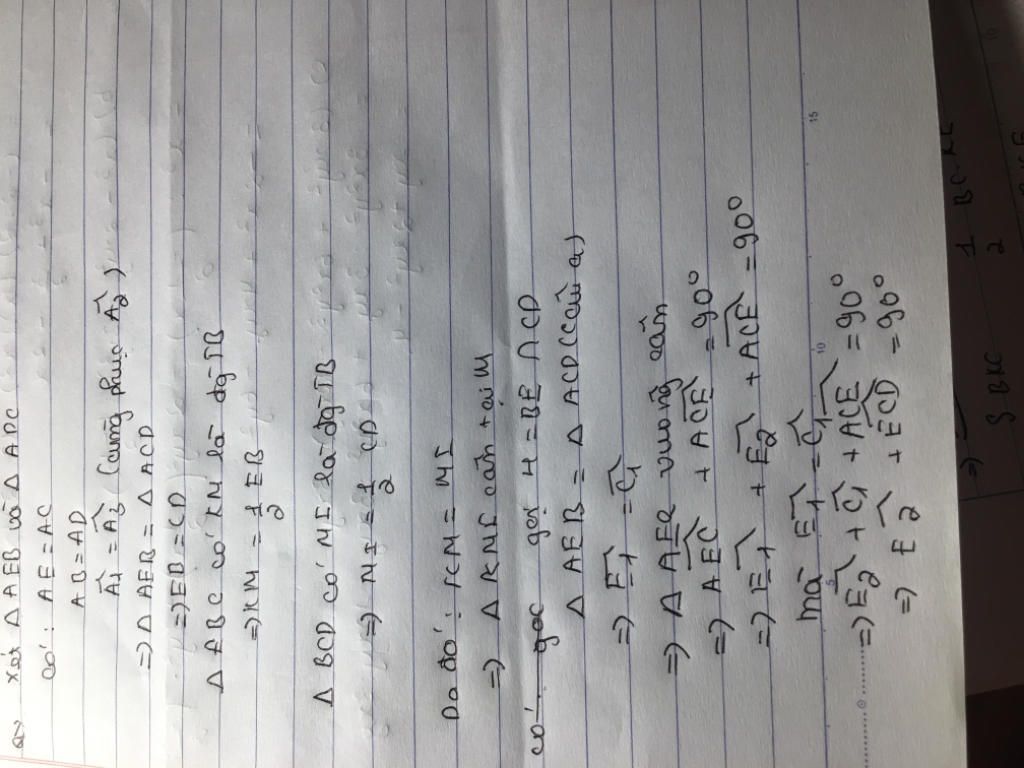 a) xét △ AEB và △ ADC
có : AE = AC
AB = AD
Â1 = Â3 (cùng phụ Â2)
=> △ AEB = △ ACD
=> EB = CD
△ ABC có KN là đg TB
=> KM = 1/2 EB
△ BCD có NI là đg TB
=> NI = 1/2 CD
Do đó : KN = NI
=> △ KNI cân tại N
có góc gọi H = BE ∩ CD
△ AEB = △ ACD (câu a)
=> Ê1 = Ĉ1
=> △ AEC vuông cân
=> AEC + ACE = 90°
=> E1 + E2 + ACE = 90°
mà E1 = C1
=> E2 + C1 + ACE = 90°
=> E2 + ECD = 90°